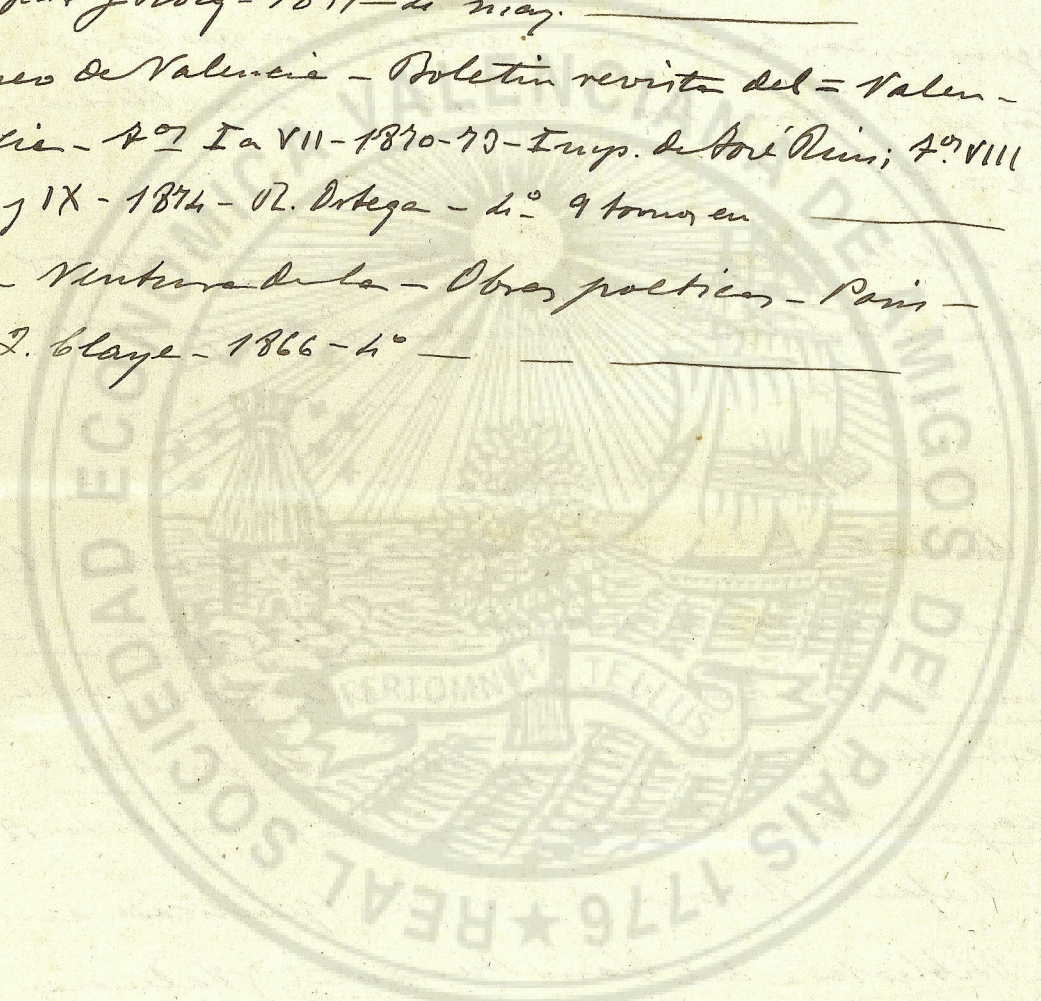 de Valencia - Boletin revista del = Valen-
cia - T.os I a VII - 1870-73 - Imp. de José Rius; T.os VIII
y IX - 1874 - R. Ortega - 4.º 9 tomos en
- Ventura de la - Obras poéticas - Paris -
J. Claye - 1866 - 4.º
REAL SOCIEDAD ECONOMICA VALENCIANA DE AMIGOS DEL PAIS 1776 ★
FERT OMNIA TELLUS